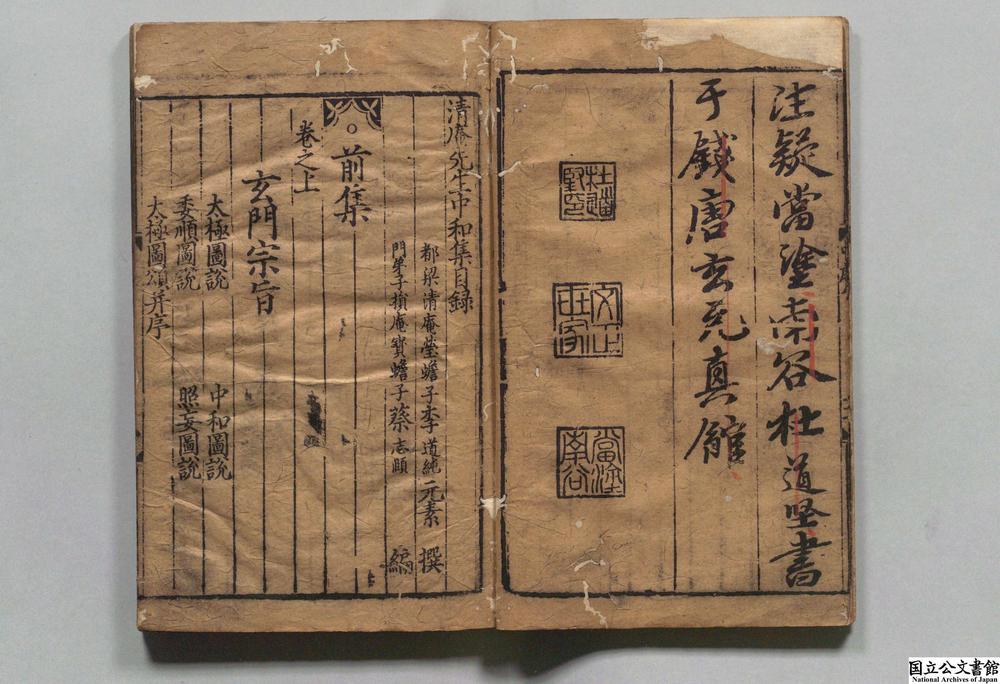 注疑當塗南谷杜道坚書
于錢唐玄元真館
杜道堅印
當塗南谷
清庵先生中和集目録
都梁清庵瑩蟾子李道純元素 撰
門弟子損庵寳蟾子蔡志頤 編
前集
卷之上
玄門宗旨
太極圖說 中和圖說
委順圖說 照妄圖說
太極圖頌并序
国立公文書館
National Archives of Japan